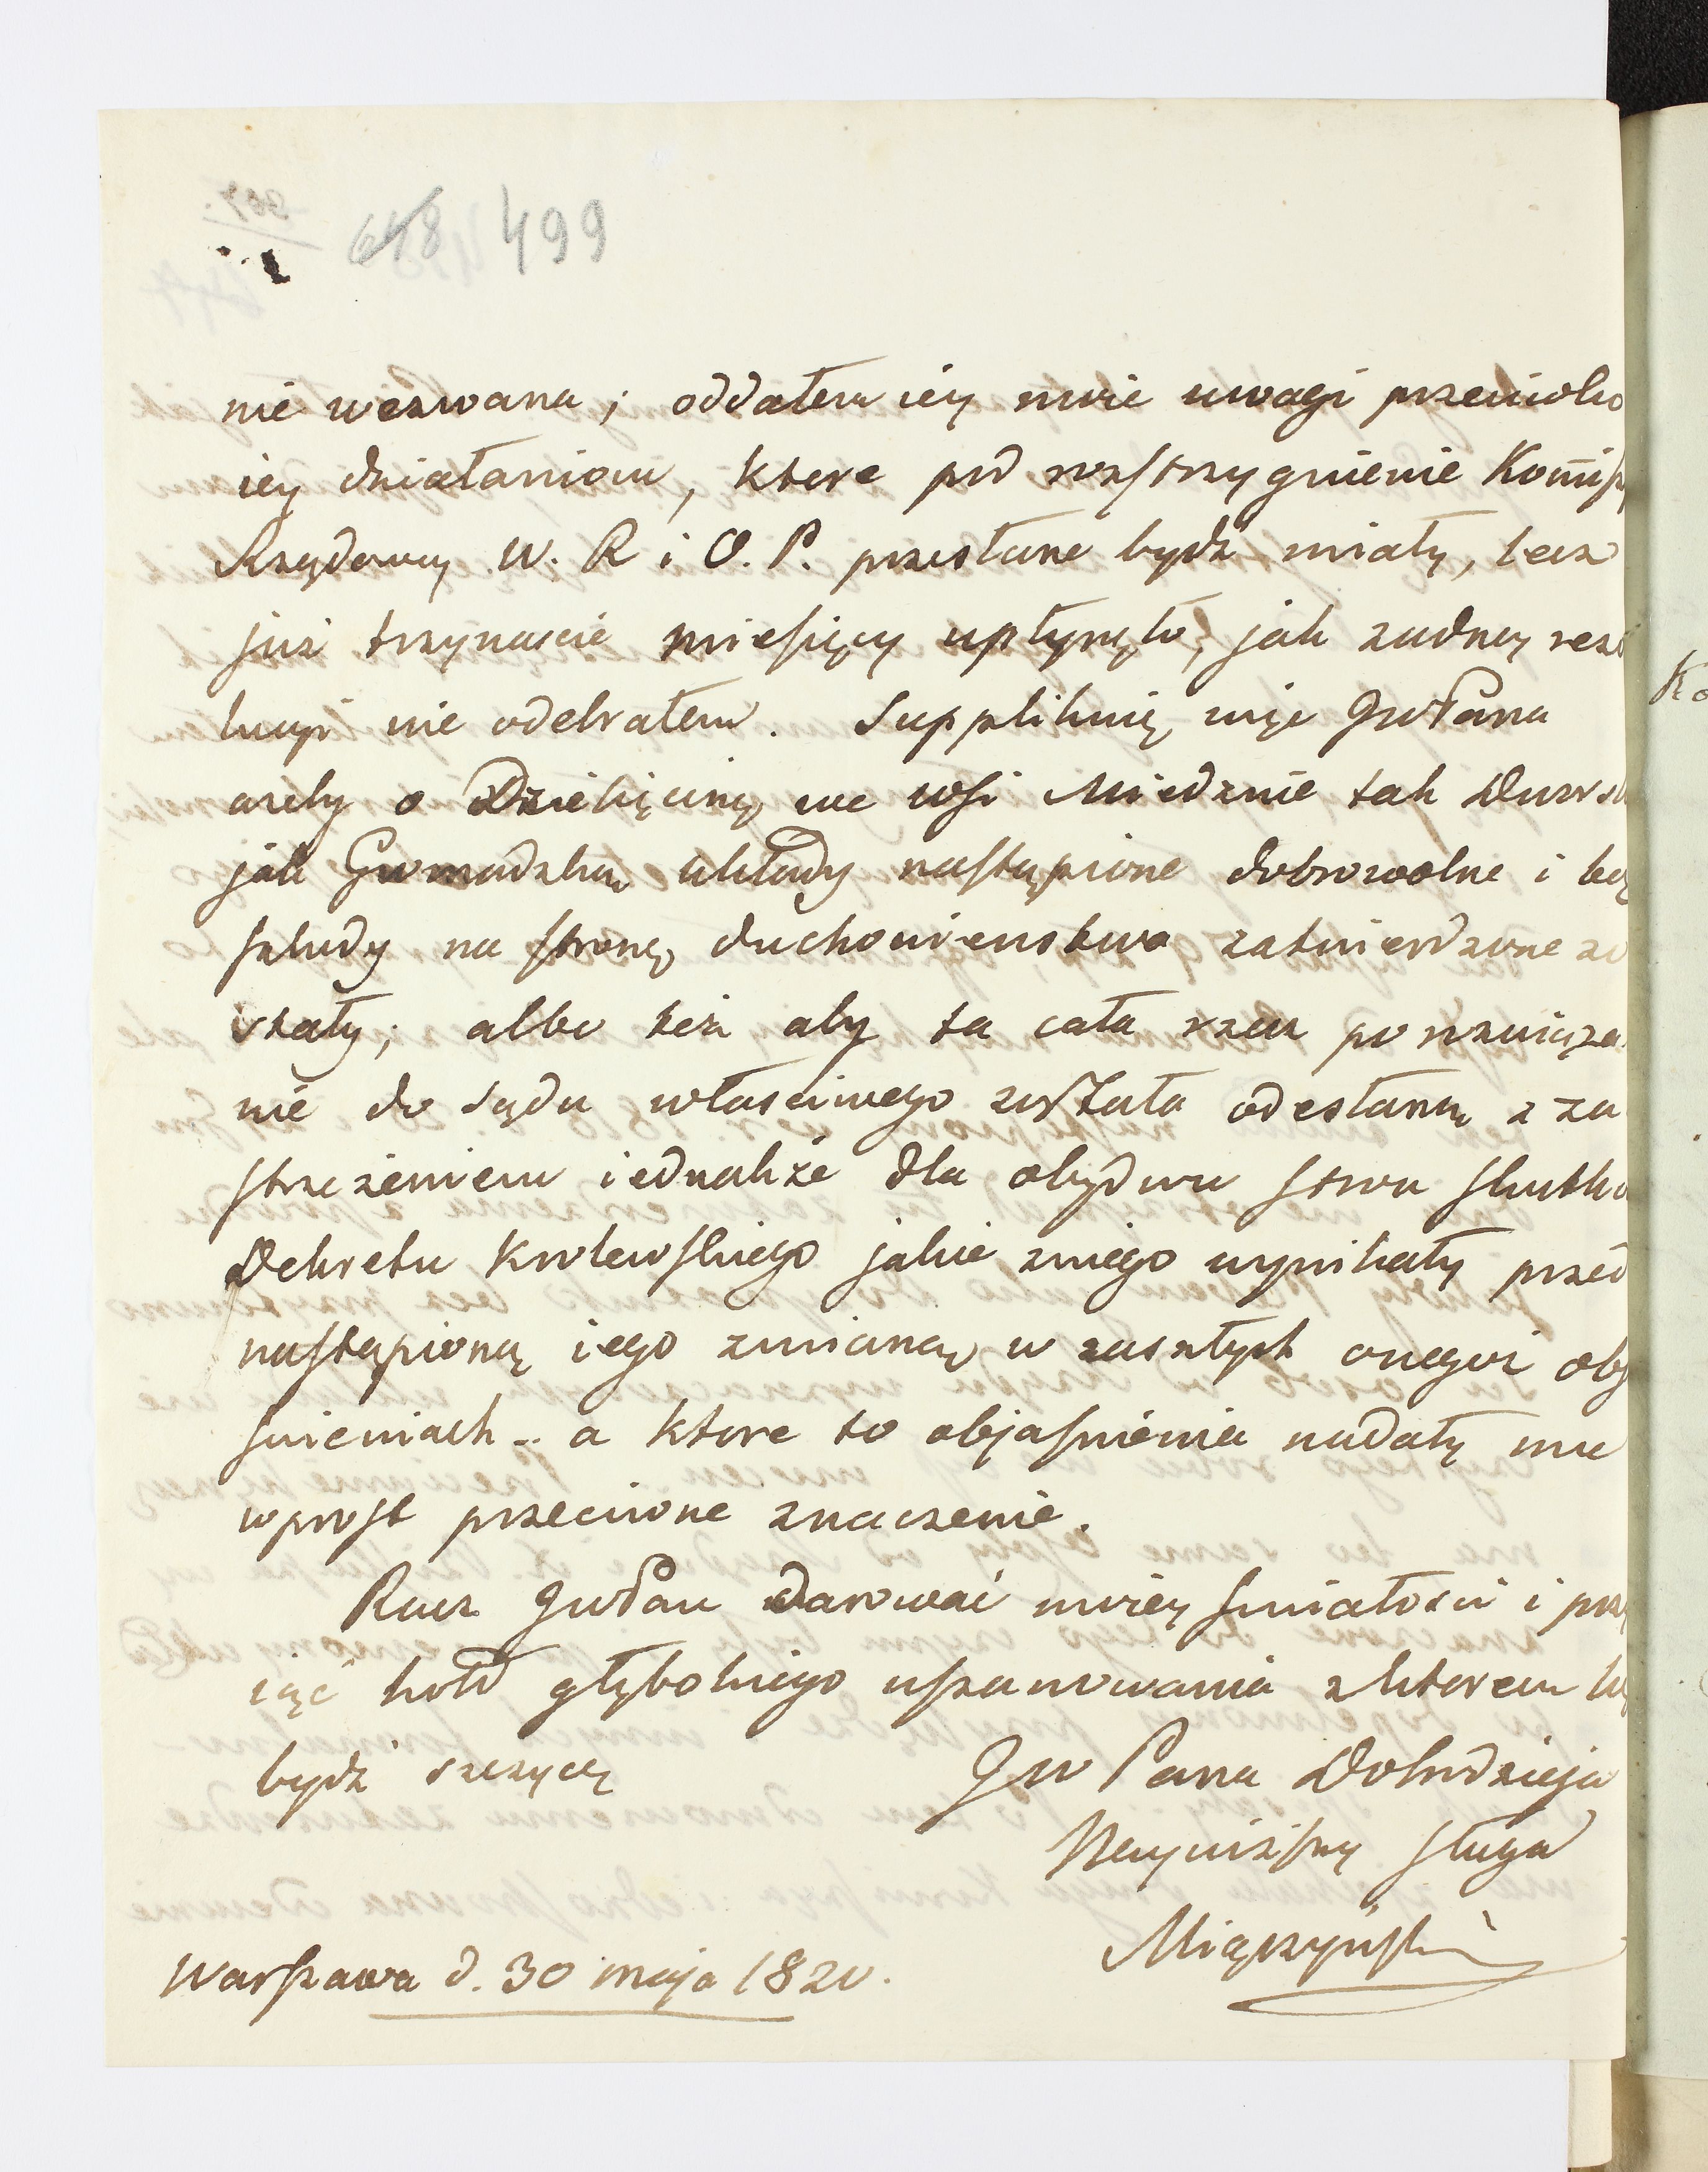 648 499
nie wezwana; oddałem iey moie uwagi przeciwko
iey działaniom, ktore pod rozstrzygnienie Kommissy
Rządowey W. R i O. P. przesłane bydź miały, lecz
już trzynascie miesięcy upłynęło, jak żadney rezo
lucyi nie odebrałem. Supplikuię więc JWPana
ażeby o Dziesięcinę we wsi Miedznie tak Dworsk
jak Gromadzką układy nastąpione dobrowolne i bez
szkody na stronę duchowienstwa zatwierdzone zo
stały; albo też aby ta cała rzecz po rozwiąza
nie do sądu właściwego została odesłaną z za
strzeżeniem iednakże dla obydwu stron skutko
Dekretu Krolewskiego jakie zniego wynikały przed
nastąpioną iego zmianą w zaszłych onegoż obja
śnieniach - a ktore to objaśnienia nadały mu
wprost przeciwne znaczenie.
Racz JWPan darować moiey śmiałości i przy
iąć hołd głębokiego uszanowania z ktorem
bydź szczycę
JW Pana Dobrodzieja
Nayniższy sługa
Miączyński
Warszawa d. 30 maja 1820.